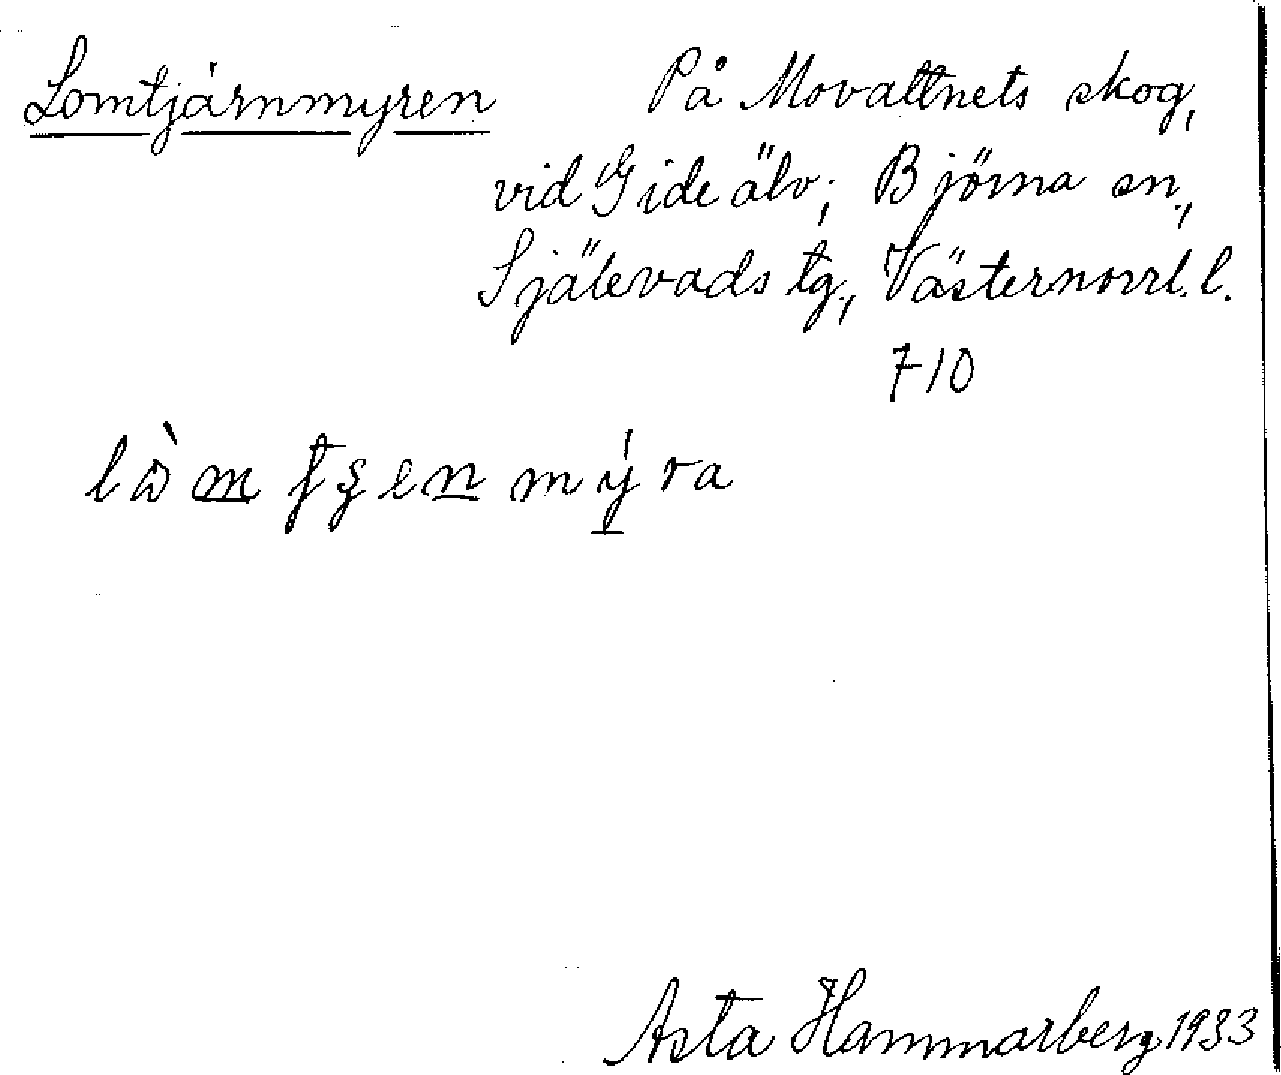 Lomtjärnmyren På Movattnets skog,
vid Gide älv; Björna sn.,
Själevads tg., Västernorrl. l.
710
myra
Asta Hammarberg 1933